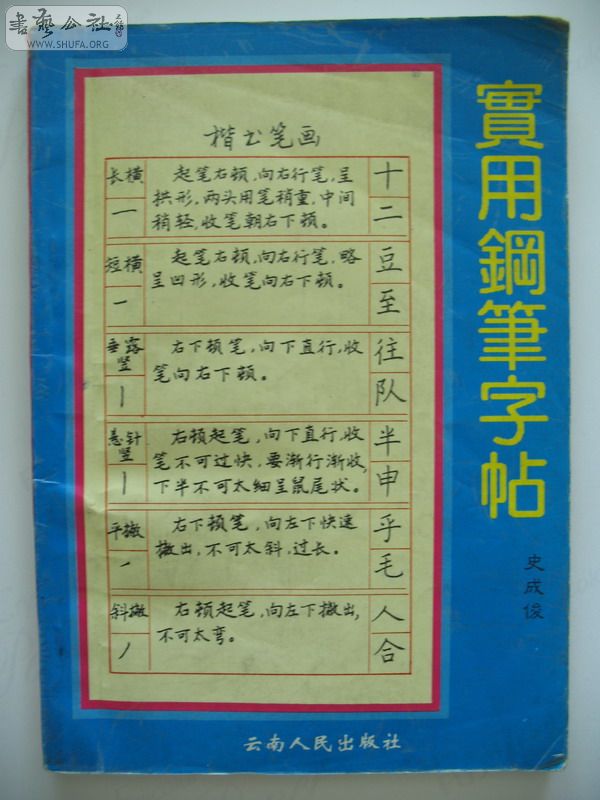 書藝公社
WWW.SHUFA.ORG
實用鋼筆字帖
史成俊
楷书笔画
长横
一
起笔右顿,向右行笔,呈
拱形,两头用笔稍重,中间
稍轻,收笔朝右下顿。
十
二
短横
一
起笔右顿,向右行笔,略
呈凹形,收笔向右下顿。
豆
至
垂露
竖
丨
右下顿笔,向下直行,收
笔向右下顿。
往
队
悬针
竖
丨
右顿起笔,向下直行,收
笔不可过快,要渐行渐收,
下半不可太细呈鼠尾状。
半
申
平撇
丿
右下顿笔,向左下快速
撇出,不可太斜,过长。
乎
毛
斜撇
丿
右顿起笔,向左下撇出,
不可太弯。
人
合
云南人民出版社